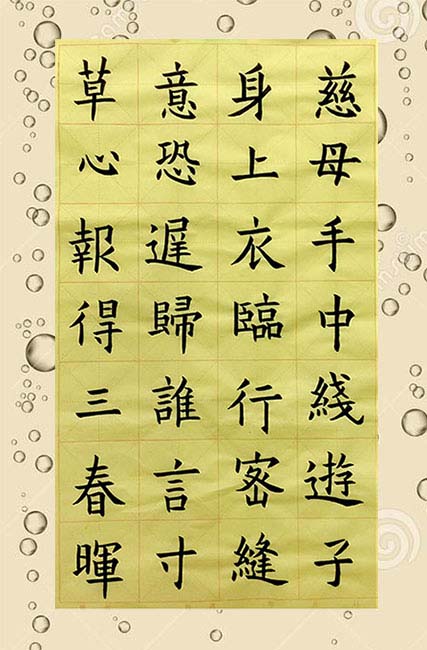 慈母手中綫遊子
身上衣臨行密縫
意恐遲歸誰言寸
草心報得三春暉